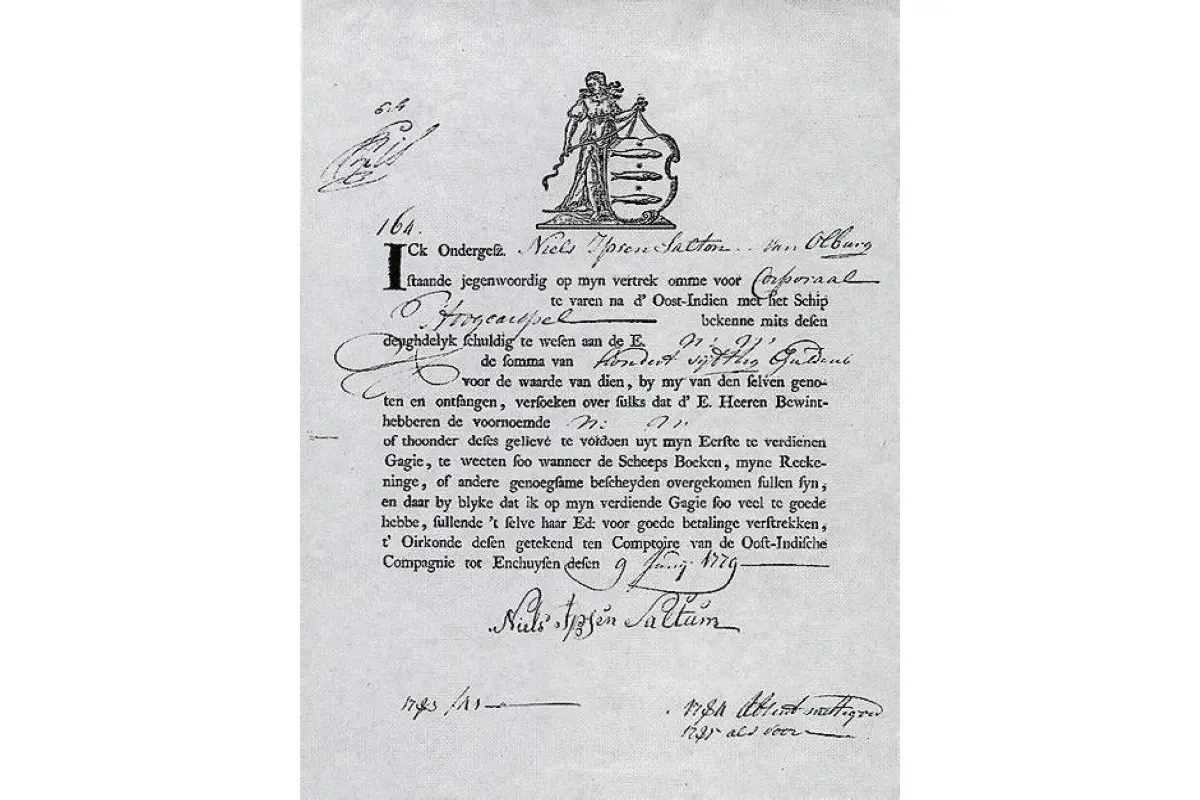 164.
ICk Ondergesz. Niels Ipsen Salton van Olburg
staande jegenwoordig op myn vertrek omme voor Corporaal
te varen na d' Oost-Indien met het Schip
Hoogcarspel bekenne mits desen
deughdelyk schuldig te wesen aan de E. N: N:
de somma van Hondert vyftig Guldens
voor de waarde van dien, by my van den selven geno-
ten en ontfangen, versoeken over sulks dat d' E. Heeren Bewint-
hebberen de voornoemde N: N:
of thoonder deses gelieve te voldoen uyt myn Eerste te verdienen
Gagie, te weeten soo wanneer de Scheeps Boeken, myne Reeke-
ninge, of andere genoegsame bescheyden overgekomen sullen syn,
en daar by blyke dat ik op myn verdiende Gagie soo veel te goede
hebbe, sullende 't selve haar Ed: voor goede betalinge verstrekken,
t' Oirkonde desen getekend ten Comptoire van de Oost-Indische
Compagnie tot Enchuysen desen 9 Juny 1779
Niels Ipsen Saltum
1783
1784 Absent
1785 als voor